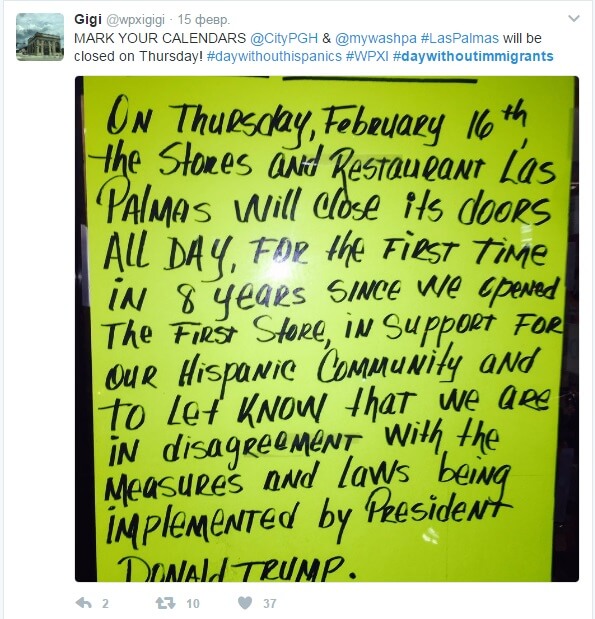 Gigi @wpxigigi · 15 февр.
MARK YOUR CALENDARS @CityPGH & @mywashpa #LasPalmas will be
closed on Thursday! #daywithouthispanics #WPXI #daywithoutimmigrants
ON THURSday, FEbRUARY 16th,
the Stores ANd REStAURANT Las
PAlmAS Will Close its doors
All DAY, FOR the FIRST Time
iN 8 years SINCE We opened
The FIRSt Store, iN SuppoRt FOR
OUR Hispanic Community aNd
to Let KNOW that we are
iN disagreemeNT With the
MeasuRes and laws being
iMplemeNTed by PResideNt
DONAld TRUMP.
2 10 37